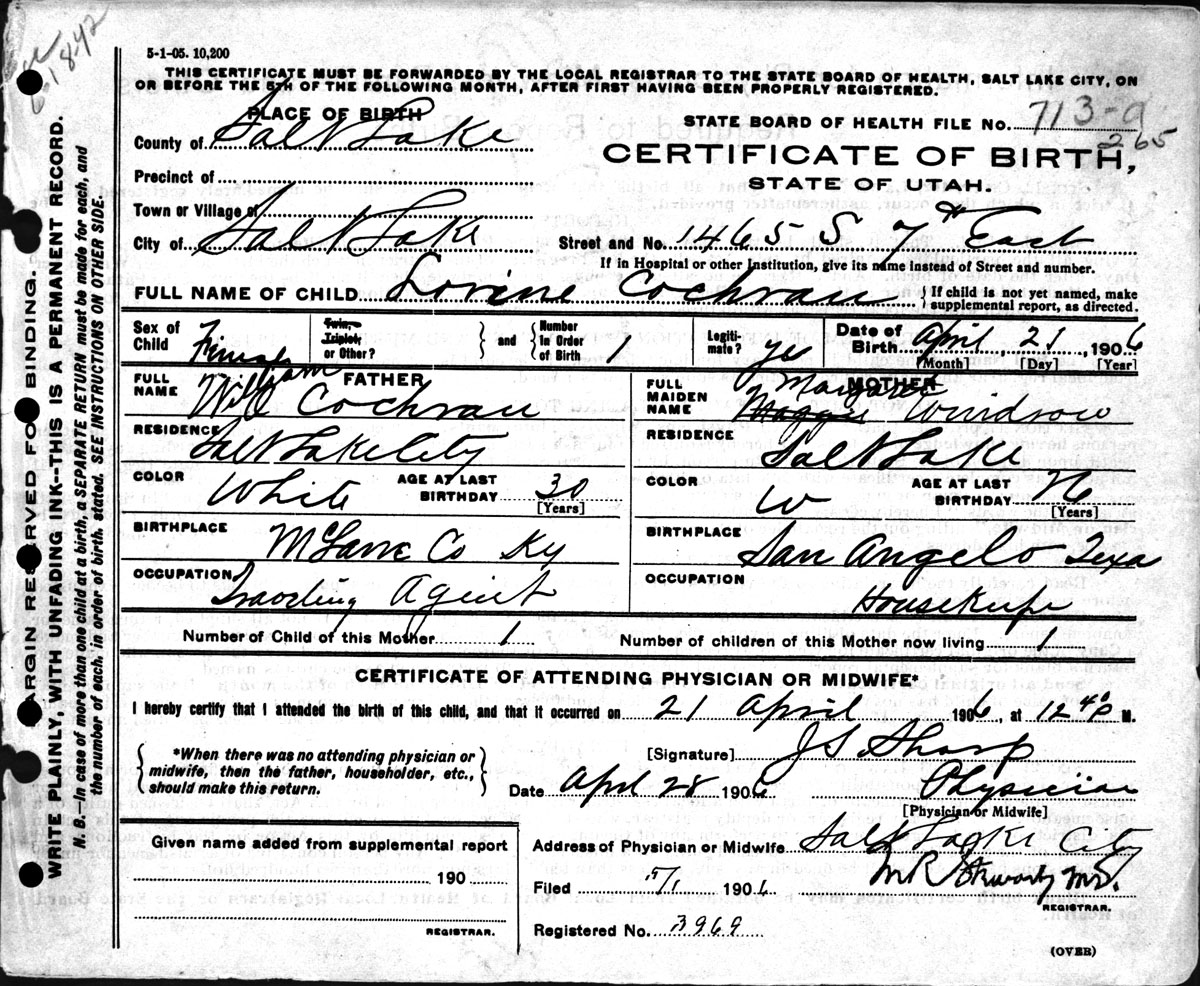 5-1-05. 10,200
THIS CERTIFICATE MUST BE FORWARDED BY THE LOCAL REGISTRAR TO THE STATE BOARD OF HEALTH, SALT LAKE CITY, ON
OR BEFORE THE 5TH OF THE FOLLOWING MONTH, AFTER FIRST HAVING BEEN PROPERLY REGISTERED.
PLACE OF BIRTH
STATE BOARD OF HEALTH FILE NO. 713-a
265
County of Salt Lake
CERTIFICATE OF BIRTH,
STATE OF UTAH.
Precinct of
Town or Village of
City of Salt Lake Street and No. 1465 S 7th East
If in Hospital or other Institution, give its name instead of Street and number.
FULL NAME OF CHILD Lorine Cochran { If child is not yet named, make supplemental report, as directed.
Sex of Child Female Twin, Triplet, or Other? } and { Number In Order of Birth 1 Legitimate? yes Date of Birth April 21, 1906
[Month] [Day] [Year]
FATHER
FULL NAME William Cochran
RESIDENCE Salt Lake City
COLOR White AGE AT LAST BIRTHDAY 30
[Years]
BIRTHPLACE Co Ky
OCCUPATION Agent
MOTHER
FULL MAIDEN NAME Margaret Windrow
RESIDENCE Salt Lake
COLOR W AGE AT LAST BIRTHDAY 26
[Years]
BIRTHPLACE San Angelo Texa
OCCUPATION
Number of Child of this Mother 1 Number of children of this Mother now living 1
CERTIFICATE OF ATTENDING PHYSICIAN OR MIDWIFE*
I hereby certify that I attended the birth of this child, and that it occurred on 21 April 1906, at 12 40 M.
{ *When there was no attending physician or midwife, then the father, householder, etc., should make this return. }
[Signature] J S Sharp
Date April 28 1906 Physician
[Physician or Midwife]
Given name added from supplemental report
190
REGISTRAR.
Address of Physician or Midwife Salt Lake City
Filed 5/1 1906
REGISTRAR.
Registered No. 3969
(OVER)
MARGIN RESERVED FOR BINDING.
WRITE PLAINLY, WITH UNFADING INK--THIS IS A PERMANENT RECORD.
N. B.--In case of more than one child at a birth, a SEPARATE RETURN must be made for each, and
the number of each, in order of birth, stated. SEE INSTRUCTIONS ON OTHER SIDE.